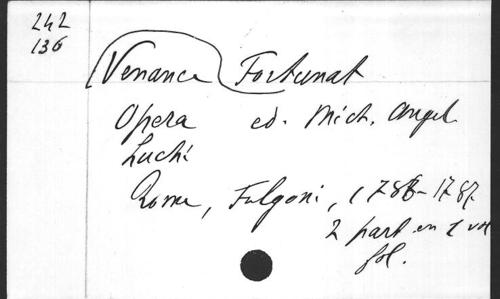 242
136
Venance Fortunat
Opera ed. Mich. Angel.
Luchi
Rome, Fulgoni, 1786-1787.
2 part en 1 vol
fol.